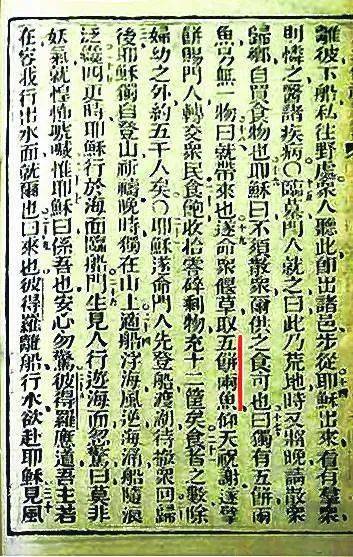 離彼下船私往野處眾人聽此即出諸邑步從耶穌出來看有羣眾
則憐之醫諸疾病〇臨墓門人就之曰此乃荒地時又將晚請散眾
歸鄉自買食物也耶穌曰不須散眾爾供之食可也曰獨有五餅兩
魚另無一物曰就帶來也遂命眾偃草取五餅兩魚仰天祝謝遂擘
餅賜門人轉交眾民食飽收拾零碎剩物充十二筐矣食者之數除
婦幼之外約五千人矣〇耶穌遂命門人先登船渡湖待散眾回歸
後耶穌獨自登山祈禱晚時獨在山上適船浮海風逆海涌船隨浪
泛幾四更時耶穌行於海面臨船門生見人行遊海面忽驚曰莫非
妖氣就惶怖號喊惟耶穌曰係吾也安心勿驚彼得羅應道吾主若
在容我行出水面就爾也曰來也彼得羅離船行水欲赴耶穌見風